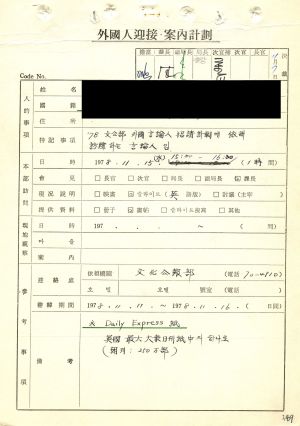 外國人迎接·案內計劃
擔當 課長 副局長 局長 次官補 次官 長官 決裁
11/7
Code No.
人的事項
姓名
國籍
住所
特記事項 '78 文公部 外國 言論人 招請計劃에 依해
訪韓하는 言論人임
本部訪問
日時 1978. 11. 15. (水) 15:00 - 16:00 (1時間)
會見 □長官 □次官 □局長 □課長
現況說明 □映畫 □슬라이드(英語版) □討議(主宰)
提供資料 □冊子 □畫帖 □슬라이드複寫 □其他
現地視察
日時 197 . . . ~
마을
案內
參考事項
連絡處 依頼機關 文化公報部 (電話 70-4910)
호텔 호텔 號室 (電話 )
滯韓期間 1978. 11. 11. ~ 1978. 11. 16. ( 日間)
備考
* Daily Express 紙
英國 最大 大衆日刊紙 中의 하나로
(每月: 250万部)
249